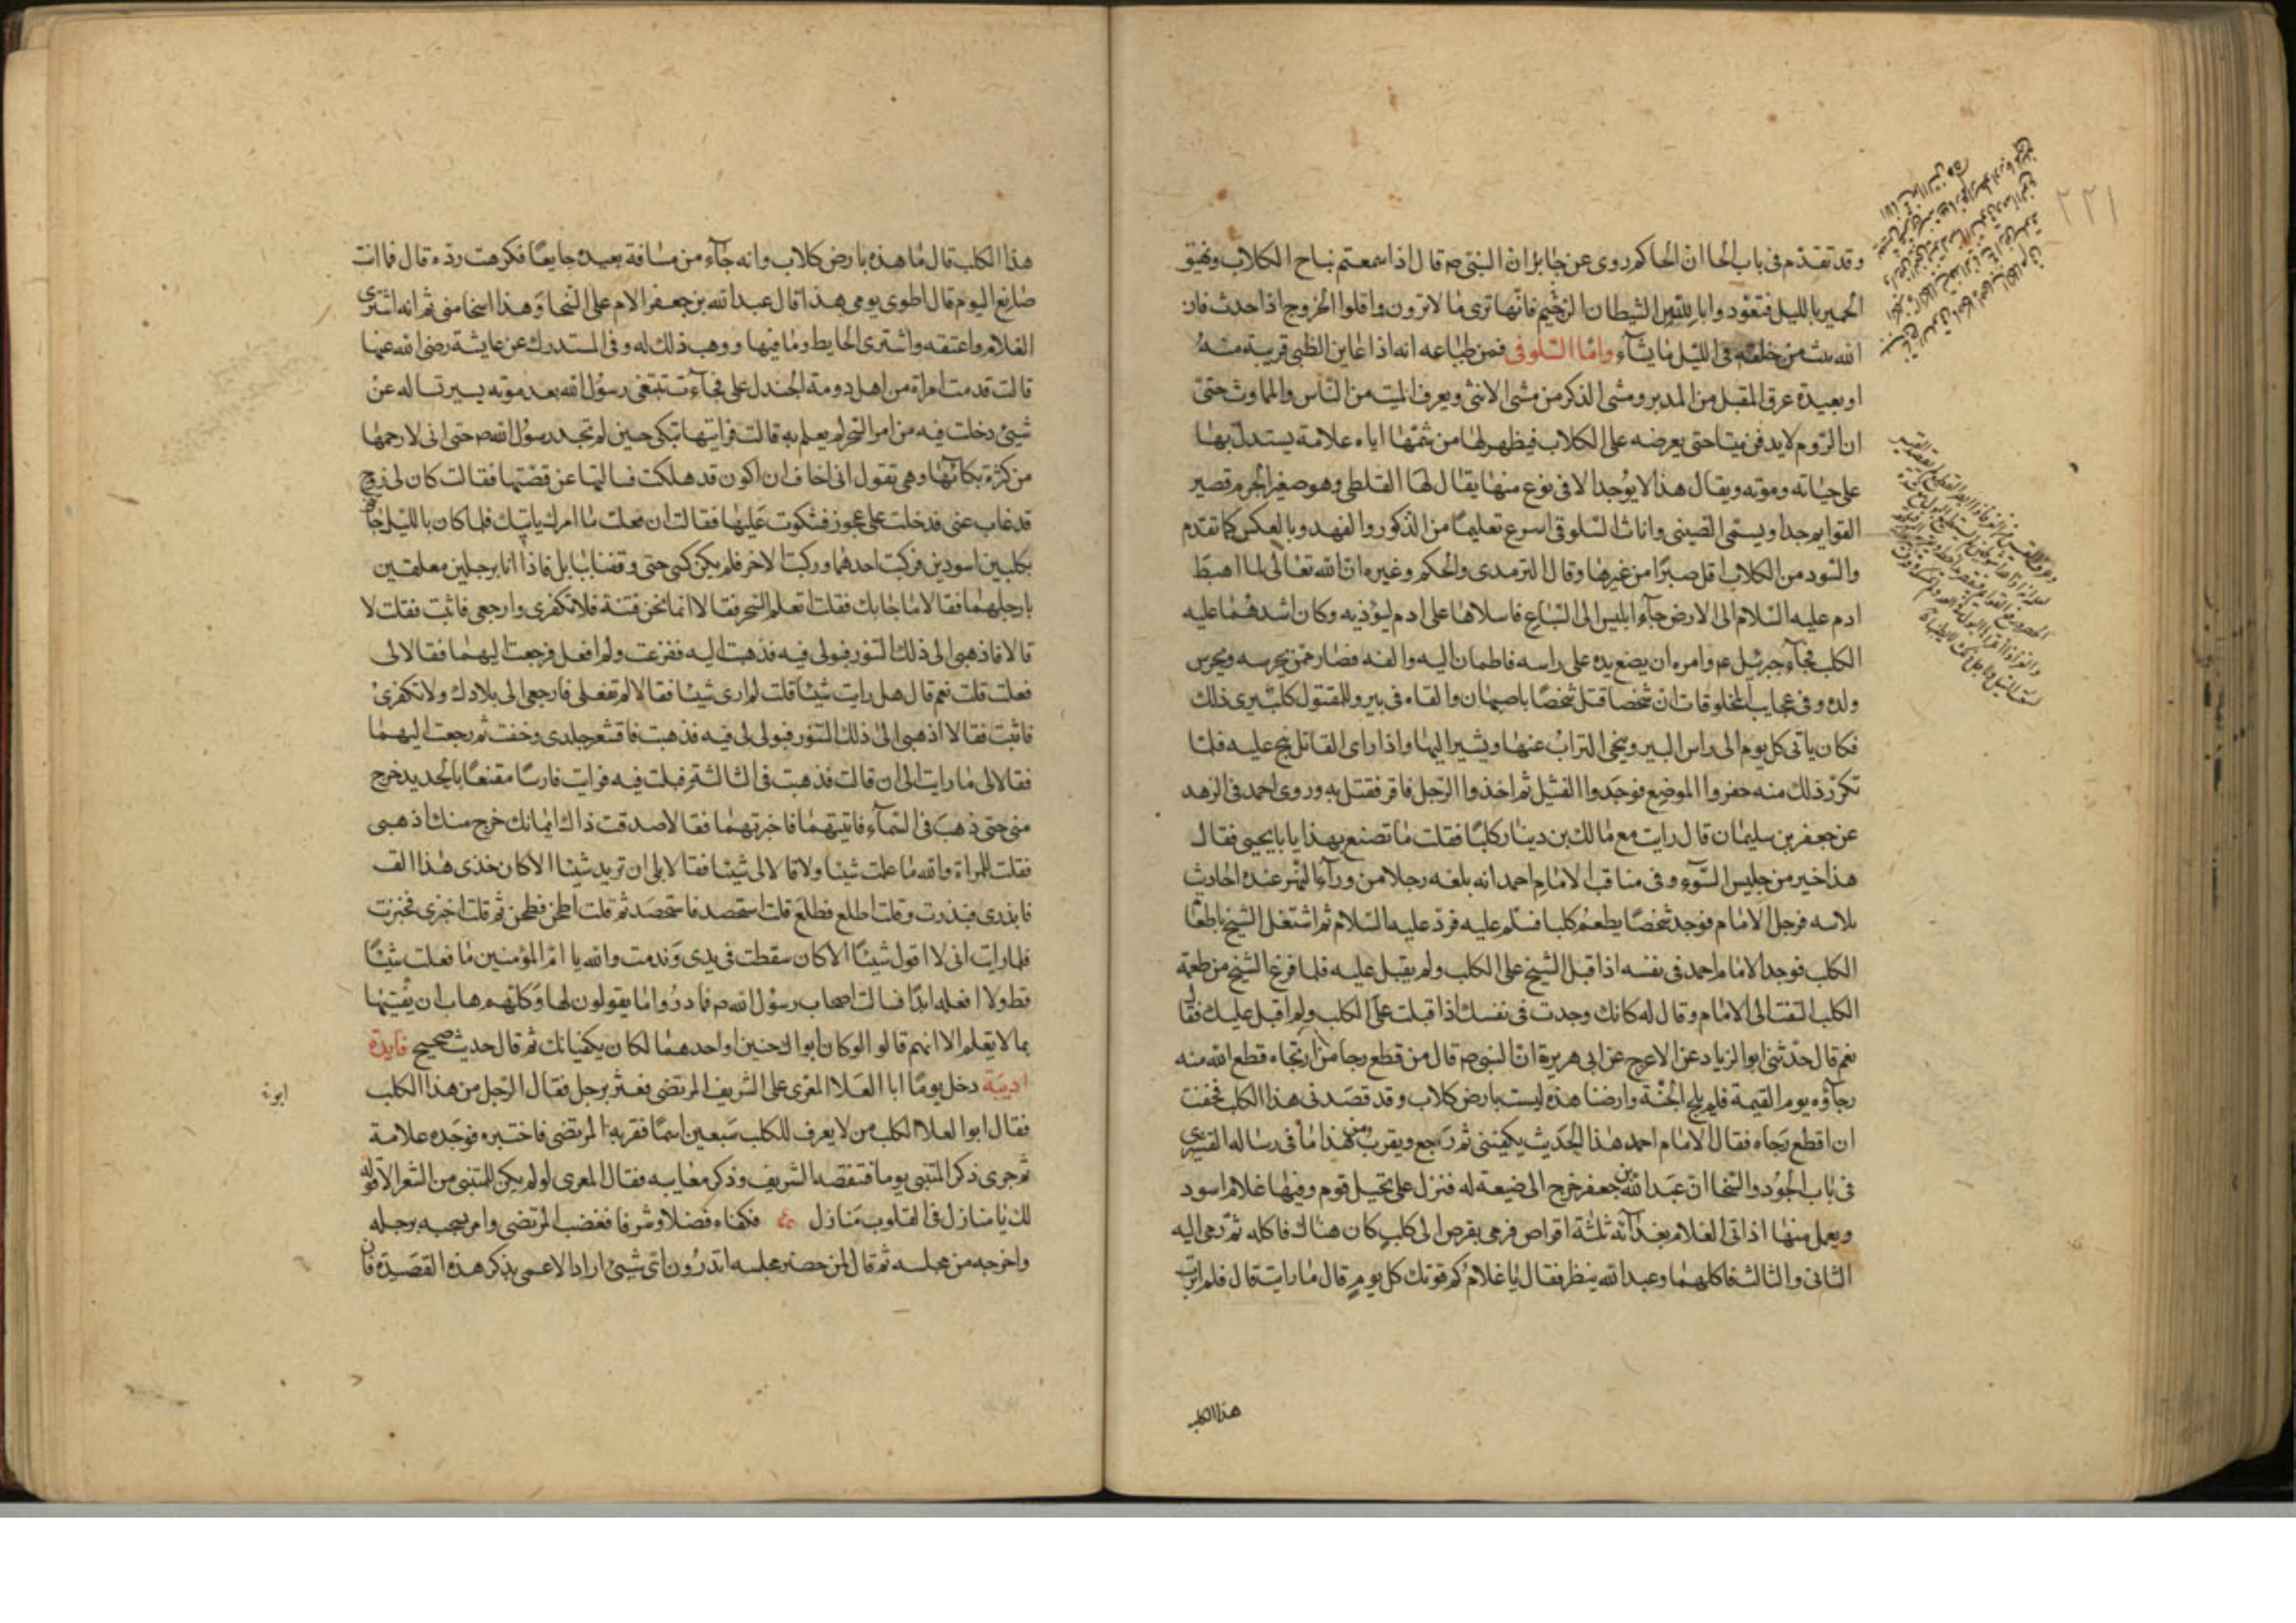 ٢٢١
وقد تقدم فى باب الحا ان الحاكم روى عن جابر ان النبى صم قال اذا سمعتم نباح الكلاب ونهيق
الحمير بالليل فتعوذوا بالله من الشيطان الرجيم فانها ترى ما لا ترون واقلوا الخروج اذا احدث فان
الله يبث من خلقه فى الليل ما يشآء واما السلوقى فمن طباعه انه اذا عاين الظبى قريبة منه
او بعيدة عرف المقبل من المدبر ومشى الذكر من مشى الانثى ويعرف الميت من الناس والمماوت حتى
ان الروم لا يدفن ميتا حتى يعرضه على الكلاب فيظهر لها من شمها اياه علامة يستدل بها
على حياته وموته ويقال هذا لا يوجد الا فى نوع منها يقال لها القلطى وهو صغير الجرم قصير
القوايم جدا ويسمى الصينى واناث السلوقى اسرع تعليما من الذكور والفهد وبالعكس كما تقدم
والسود من الكلاب اقل صبرا من غيرها وقال الترمدى والحكم وغيره ان الله تعالى لما اهبط
ادم عليه السلام الى الارض جآء ابليس الى السباع فاسلاها على ادم ليؤذيه وكان اشدهما عليه
الكلب فجآء جبرئيل عم وامره ان يضع يده على راسه فاطمان اليه والفه فصار ممن يحرسه ويحرس
ولده وفى عجايب المخلوقات ان شخصا قتل شخصا باصبهان والقاه فى بير وللمقتول كلب يرى ذلك
فكان ياتى كل يوم الى راس البير وينحى التراب عنها ويشير اليها واذا راى القاتل نبح عليه فلما
تكرر ذلك منه حفروا الموضع فوجدوا القتيل ثم اخذوا الرجل فاقر فقتل به وروى احمد فى الزهد
عن جعفر بن سليمان قال رايت مع مالك بن دينار كلبا فقلت ما تصنع بهذا يابا يحيى فقال
هذا خير من جليس السوء وفى مناقب الامام احمد انه بلغه رجلا من ورآء النهر عنده احاديث
ثلاثه فرحل الامام فوجد شخصا يطعم كلبا فسلم عليه فرد عليه السلام ثم اشتغل الشيخ باطعام
الكلب فوجد الامام احمد فى نفسه اذا قبل الشيخ على الكلب ولم يقبل عليه فلما فرغ الشيخ من طعمة
الكلب التفت الى الامام وقال له كانك وجدت فى نفسك اذا قبلت على الكلب ولم اقبل عليك فقال
نعم قال حدثنى ابو الزياد عن الاعرج عن ابى هريرة ان النبى صم قال من قطع رجا من ارتجاه قطع الله منه
رجاؤه يوم القيمة فلم يلج الجنة وارضنا هذه ليست بارض كلاب وقد قصد نى هذا الكلب فخفت
ان اقطع رجاه فقال الامام احمد هذا الحديث يكفينى ثم رجع ويقرب من هذا ما فى رساله القشيرى
فى باب الجود والسخا ان عبد الله بن جعفر خرج الى ضيعة له فنزل على نخيل قوم وفيها غلام اسود
ويعمل منها اذ اتى الغلام بغدآئه ثلثة اقراص فرمى بقرص الى كلب كان هناك فاكله ثم رمى اليه
الثانى والثالث فاكلهما وعبد الله ينظر فقال يا غلام كم قوتك كل يوم قال ما رايت قال فلم اثرت
هذا الكلب
هذا الكلب قال ما هذه بارض كلاب وانه جآء من مسافة بعيدة جايعا فكرهت رده قال فما انت
صانع اليوم قال اطوى يومى هذا قال عبد الله بن جعفر الام على السخا وهذا اسخا منى ثم انه اشترى
الغلام واعتقه واشترى الحايط وما فيها ووهب ذلك له وفى المستدرك عن عايشة رضى الله عنها
قالت قدمت امراة من اهل دومة الجندل على فجآءت تبتغى رسول الله بعد موته يسير تساله عن
شيئ دخلت فيه من امر السحر لم يعلم به قالت فرايتها تبكى حين لم تجد رسول الله صم حتى انى لا رحمها
من كثرة بكائها وهى تقول انى اخاف ان اكون قد هلكت فسالتها عن قصتها فقالت كان لى زوج
قد غاب عنى فدخلت على عجوز فشكوت عليها فقالت ان فعلت ما امرك ياتيك فلما كان بالليل جآت
بكلبين اسودين فركبت احدهما وركبت الاخر فلم يكن كشى حتى وقفنا ببابل فاذا انا برجلين معلقين
بارجلهما فقالا ما جابك فقلت اتعلم السحر فقالا انما نحن فتنة فلا تكفرى وارجعى فابت فقلت لا
قالا فاذهبى الى ذلك التنور فبولى فيه فذهبت اليه ففزعت ولم افعل فرجعت اليهما فقالا لى
فعلت قلت نعم قال هل رايت شيئا قلت لم ارى شيئا فقالا لم تفعلى فارجعى الى بلادك ولا تكفرى
فابت فقالا اذهبى الى ذلك التنور فبولى لى فيه فذهبت فاقشعر جلدى وخفت ثم رجعت اليهما
فقالا لى ما رايت الى ان قالت فذهبت فى الثالثة فبلت فيه فرايت فارسا مقنعا بالحديد خرج
منى حتى ذهب فى السمآء فاتيتهما فاخبرتهما فقالا صدقت ذاك ايمانك خرج منك اذهبى
فقلت للمراة والله ما علمت شيئا ولا قالا لى شيئا فقالا بلى ان تريد شيئا الا كان خذى هذا القف
فابذرى فبذرت وقلت اطلع فطلع قلت استحصد فاستحصد ثم قلت اطحن فطحن ثم قلت اخبزى فخبزت
فلما رايت انى لا اقول شيئا الا كان سقطت فى يدى وندمت والله يا ام المؤمنين ما فعلت شيئا
قط ولا افعله ابدا فسالت اصحاب رسول الله صم فما دروا ما يقولون لها وكلهم هاب ان يفتيها
بما لا يعلم الا انهم قالو الو كان ابواك حنين او احدهما لكان يكفيانك ثم قال حديث صحيح فايدة
ادبية دخل يوما ابا العلا المعرى على الشريف المرتضى فعثر برجل فقال الرجل من هذا الكلب
ابوه
فقال ابو العلا الكلب من لا يعرف للكلب سبعين اسما فقربه المرتضى فاختبره فوجده علامة
ثم جرى ذكر المتنبى يوما فتنقصه الشريف وذكر معايبه فقال المعرى لو لم يكن للمتنبى من الشعر الا قوله
لك يا منازل فى القلوب منازل فكفاه فضلا وشرفا فغضب المرتضى وامر بسحبه برجله
واخرجه من مجلسه ثم قال لمن حضر مجلسه اتدرون اى شيئ اراد الاعمى بذكر هذه القصيدة فان